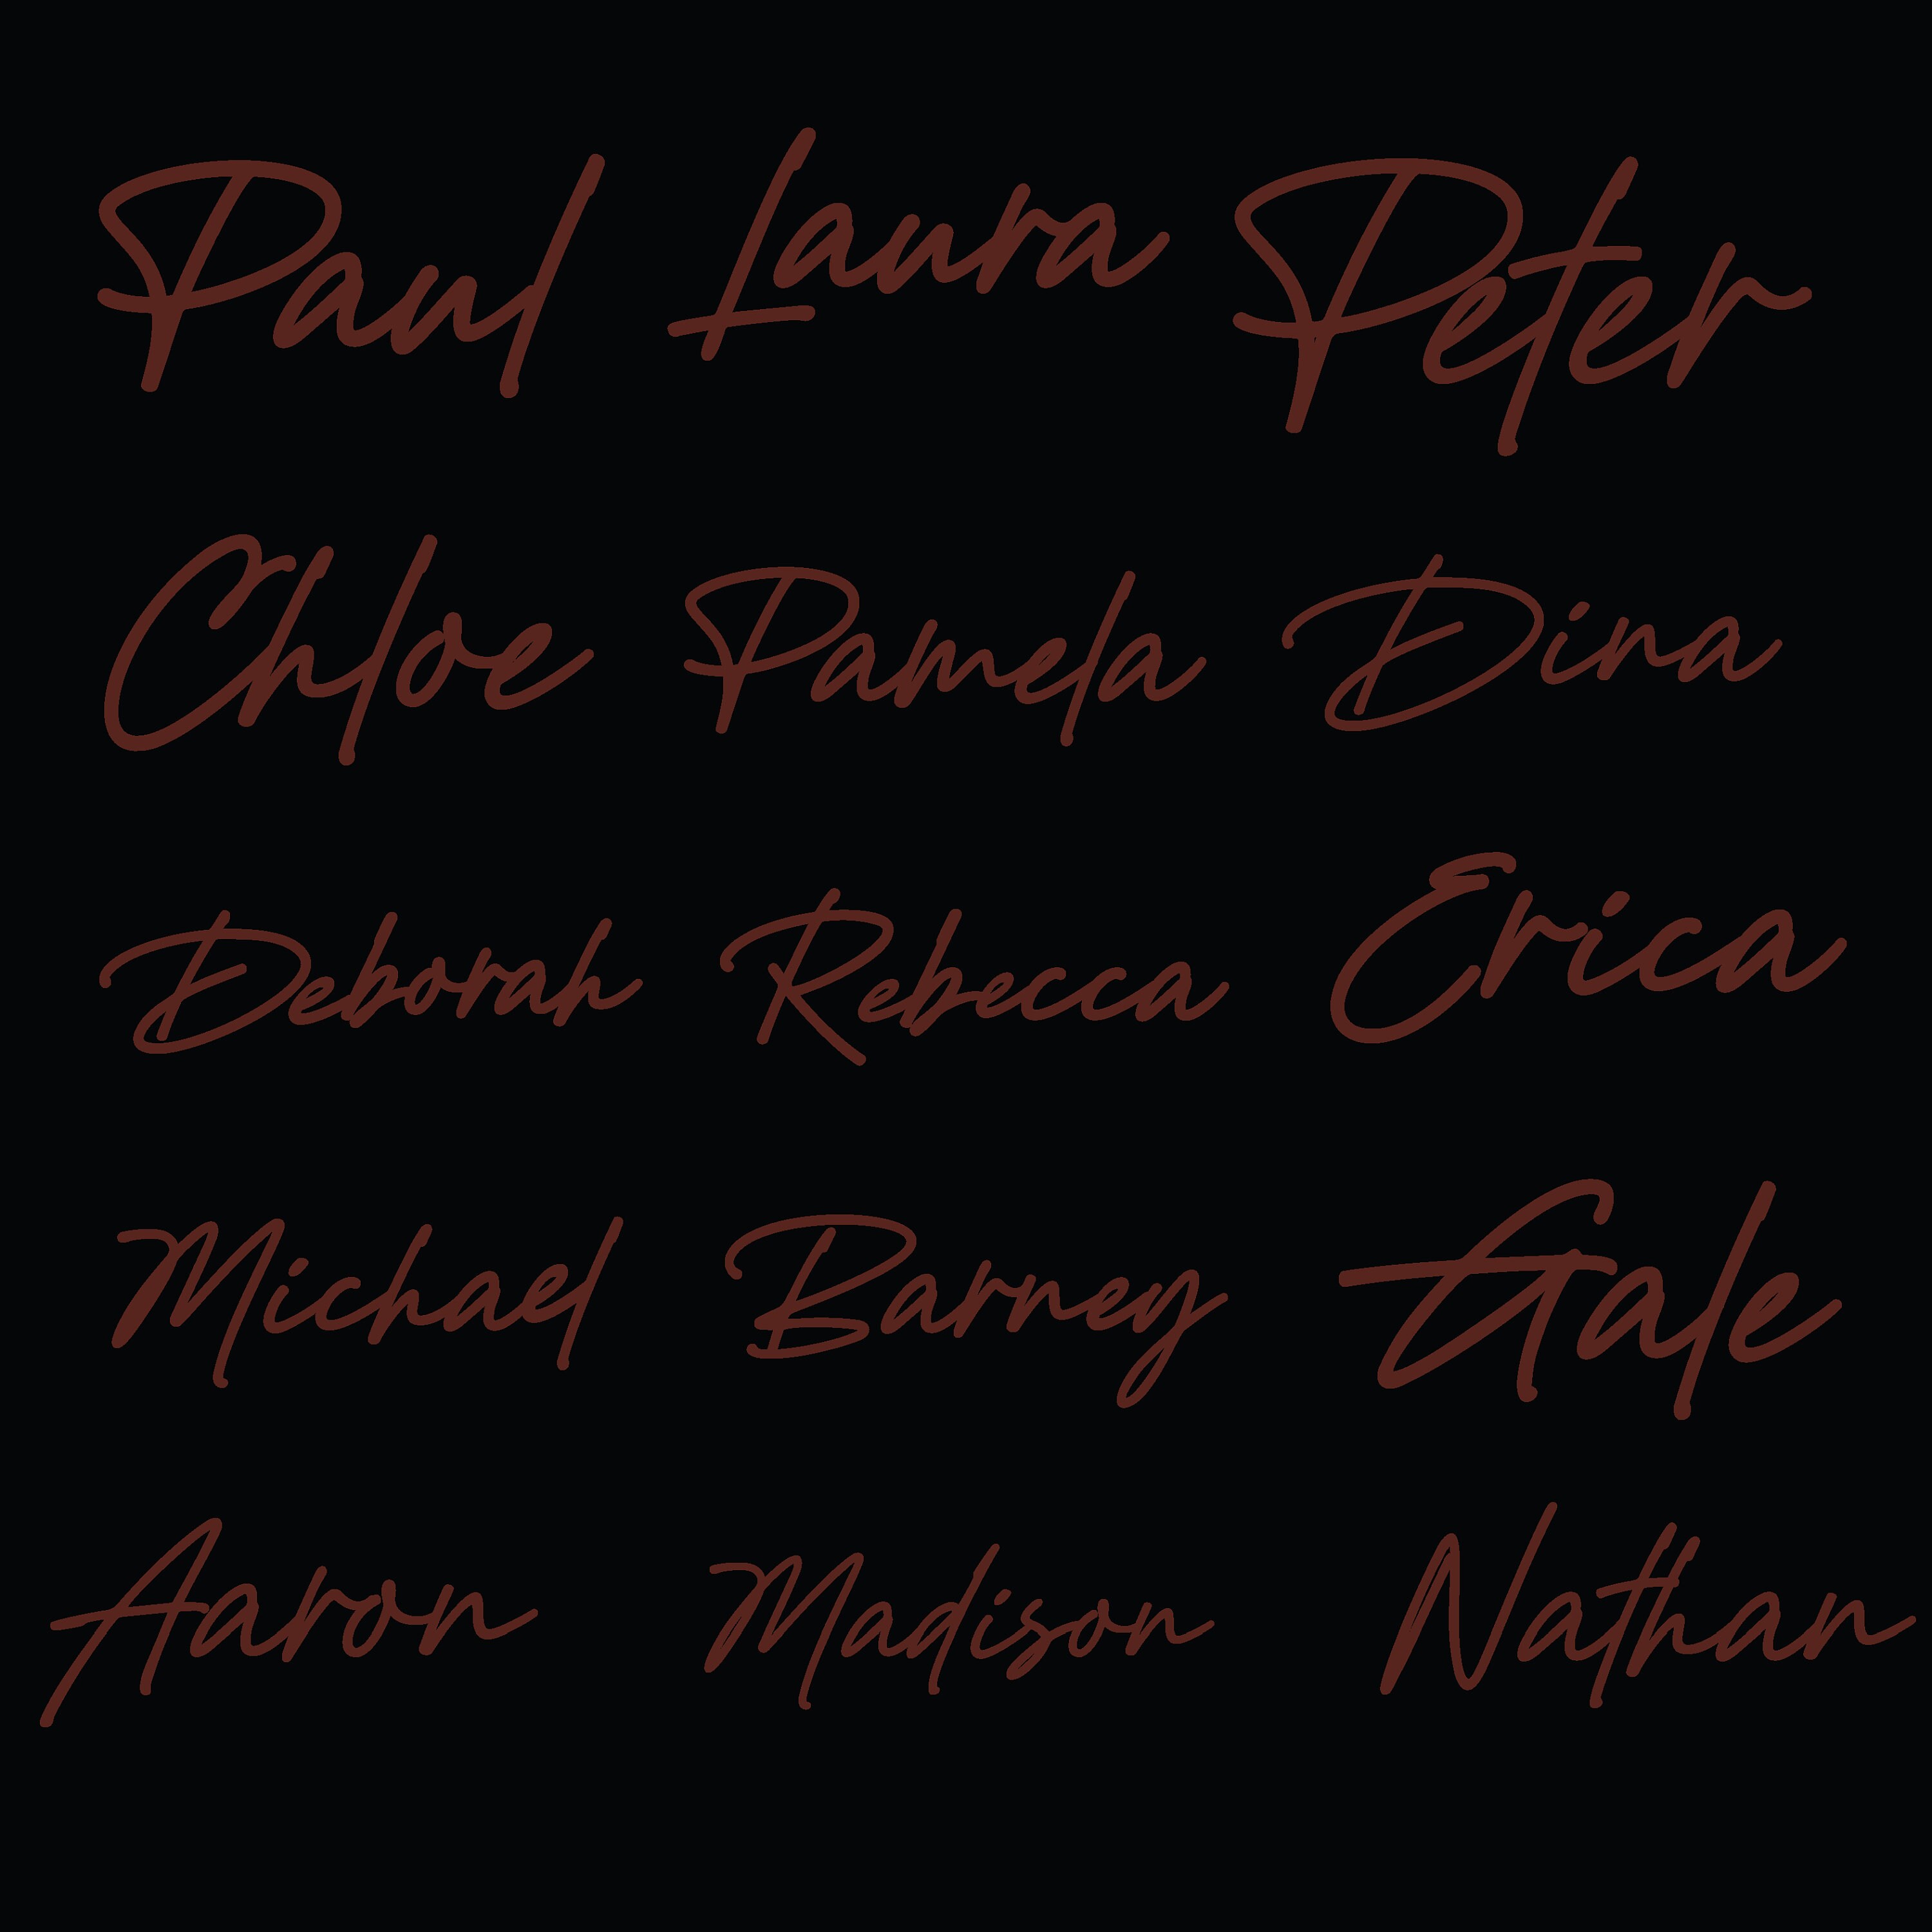 Paul Laura Peter
Chloe Pamela Dina
Deborah Rebecca Erica
Michael Barney Gale
Aaron Madison Nathan